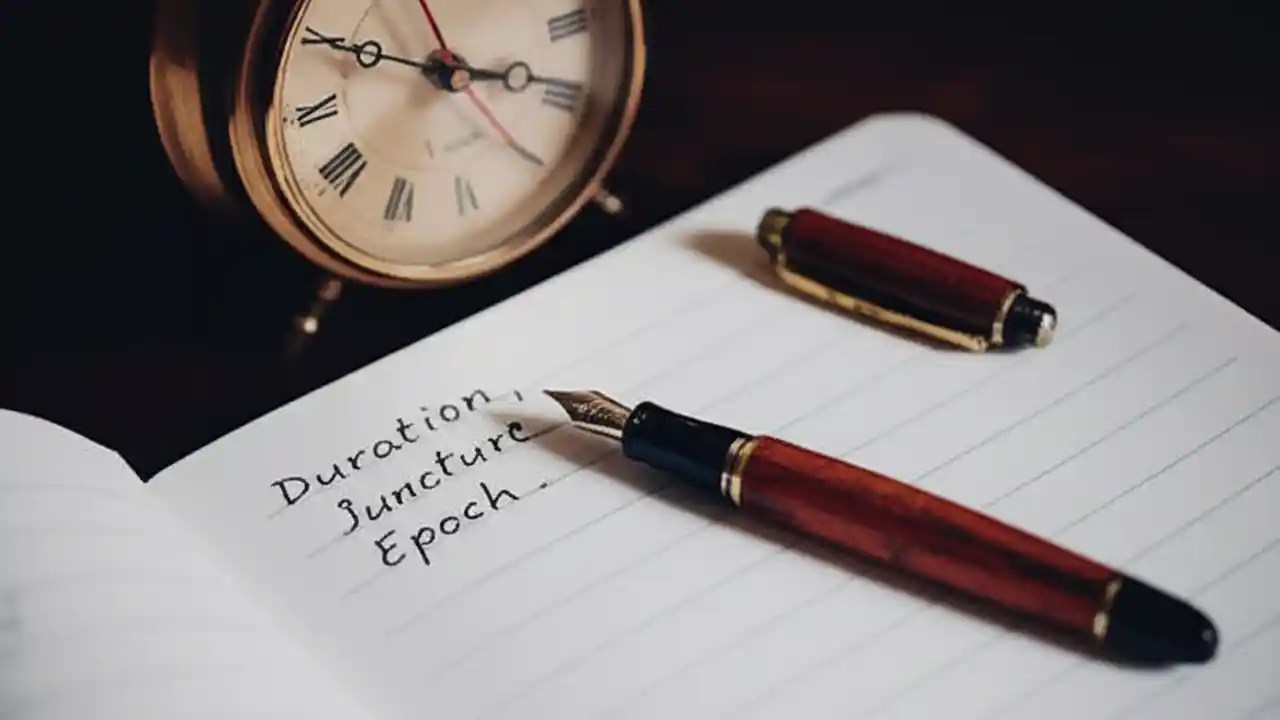 Duration,
Juncture
Epoch.